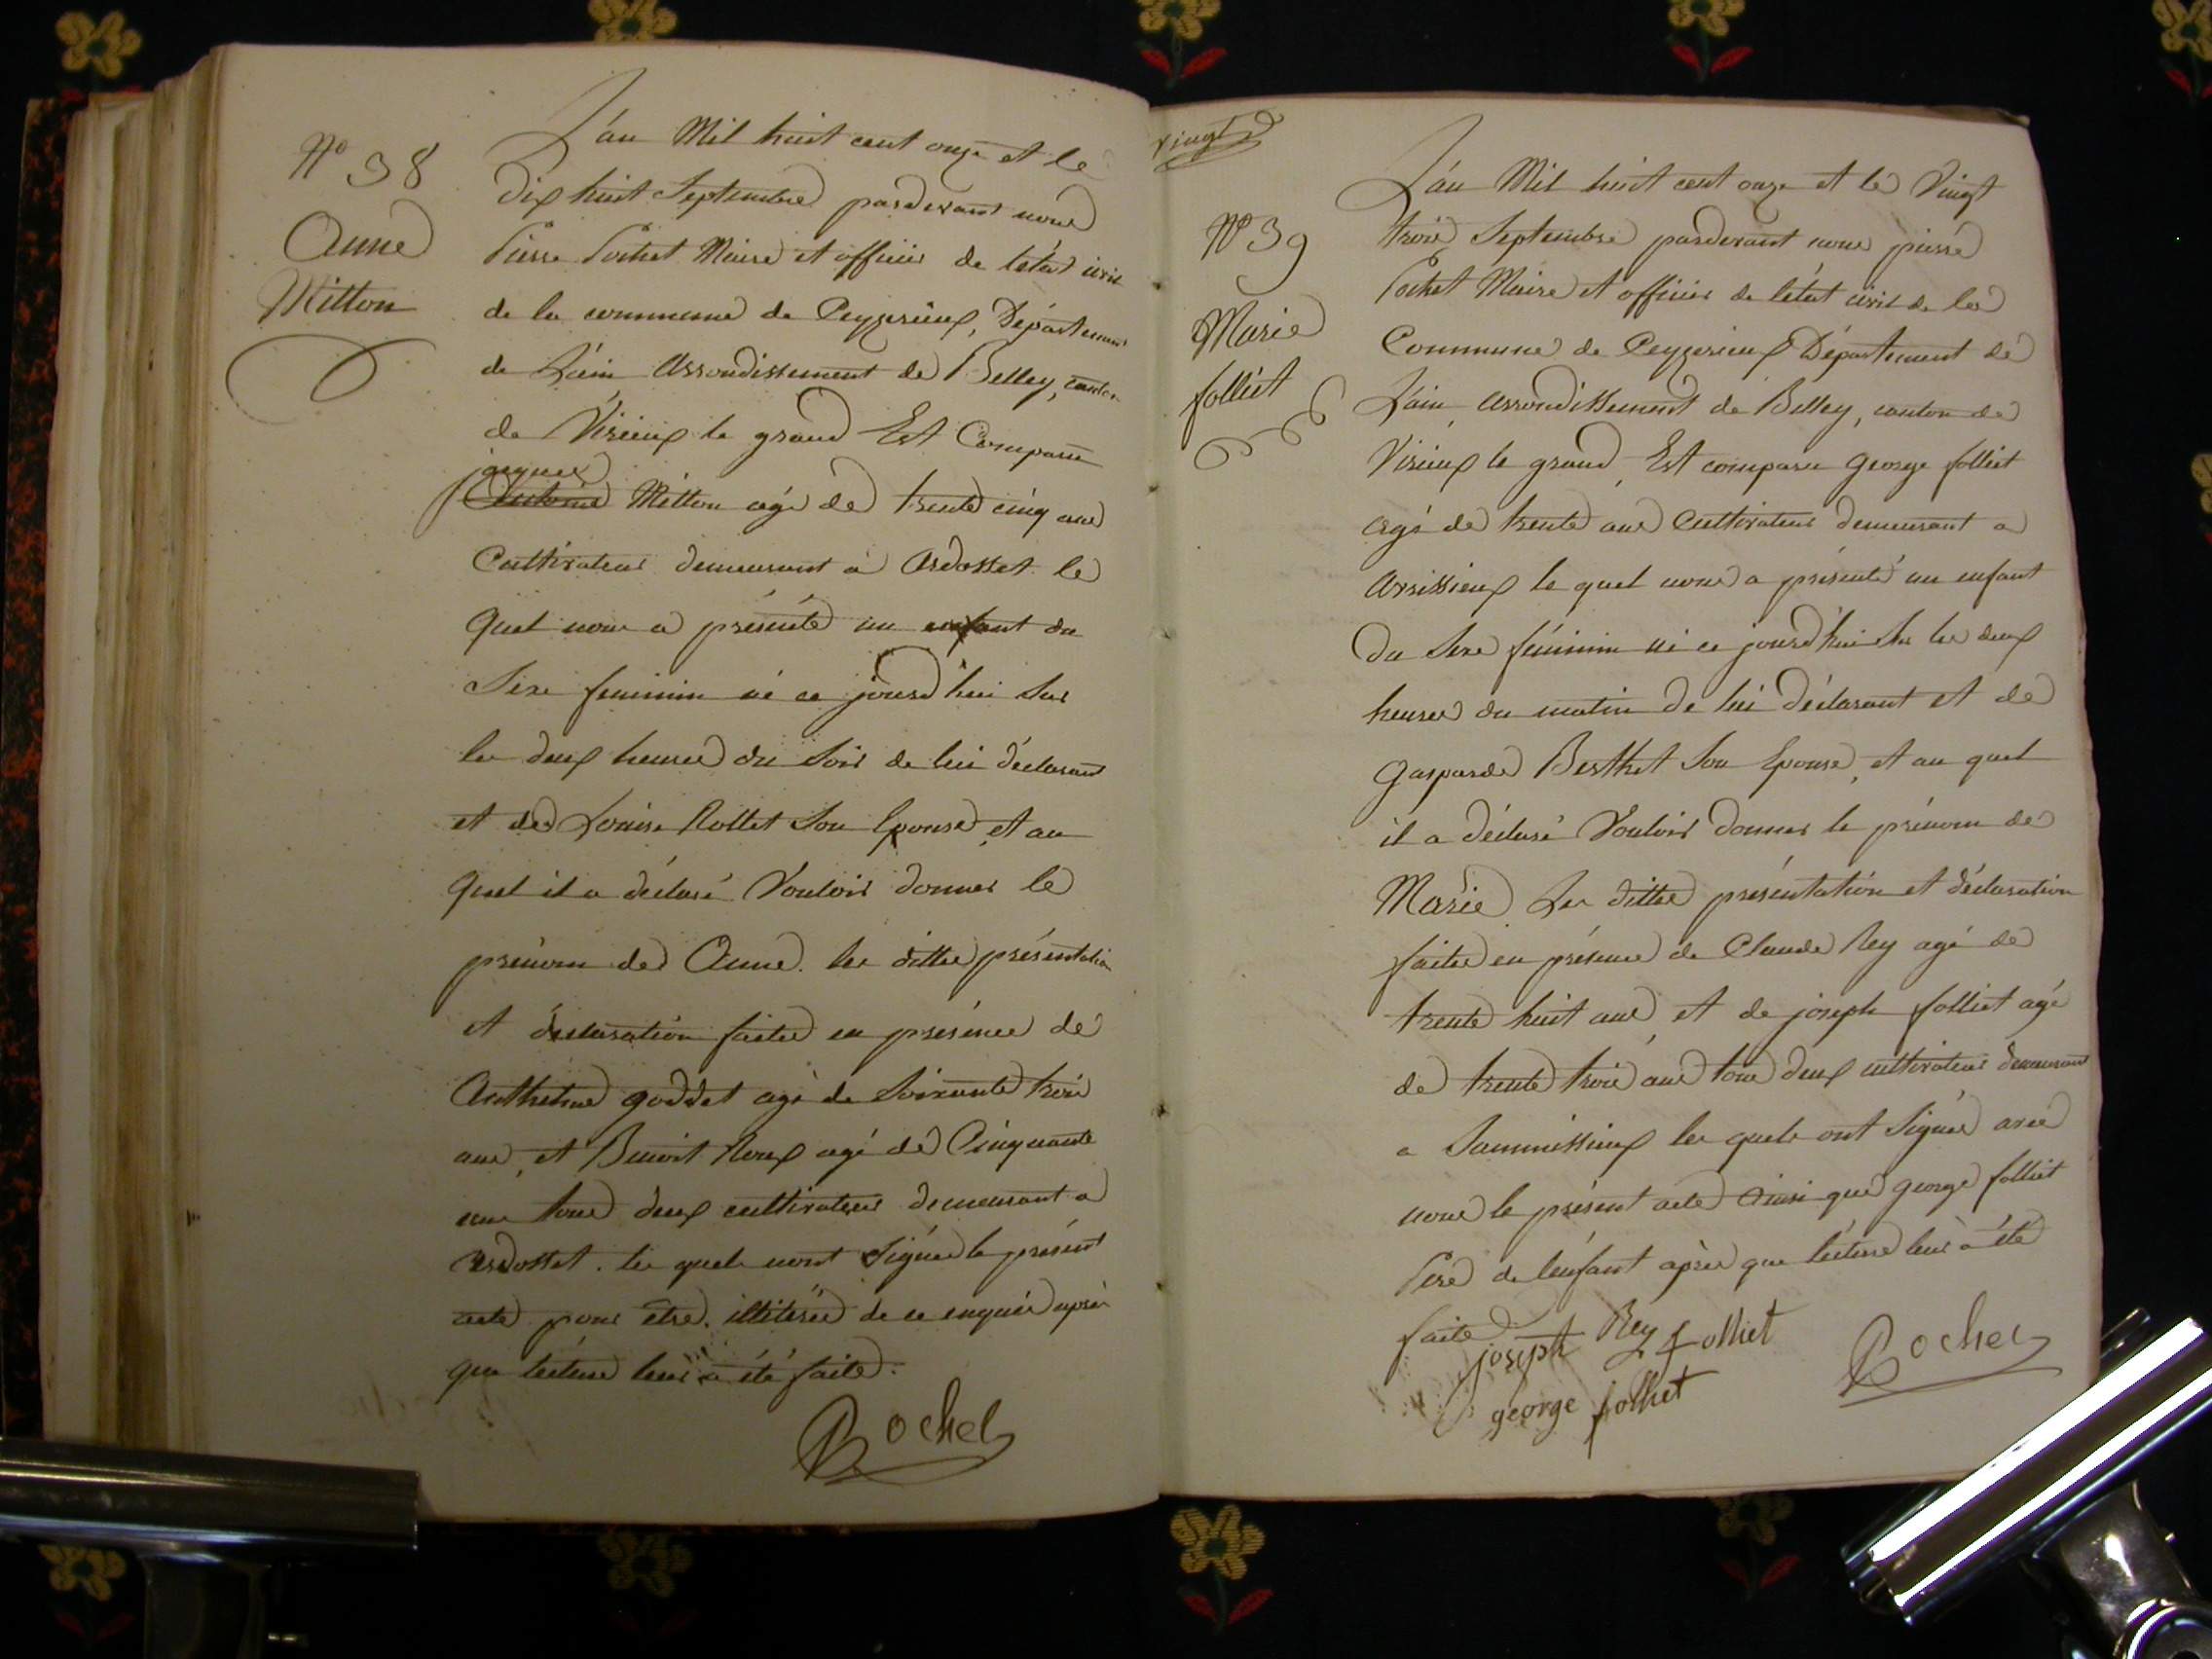 N° 38
Anne
Mitton
L'an Mil huit cent onze et le
Dix huit Septembre pardevant nous
Pierre Pochet Maire et officier de l'état civil
de la commune de Peyzerieux, Département
de L'ain arrondissement de Belley, canton
de Virieux le grand Est Comparu
jacques
Antoine Mitton agé de trente cinq ans
Cultivateur demeurant à Ardosset le
quel nous a présenté un enfant du
Sexe feminin né ce jourd'hui sur
les deux heures du soir de lui déclarant
et de Louise Rollet son Epouse, et au
quel il a déclaré Vouloir donner le
prénom de Anne. les dittes présentation
et déclaration faites en présence de
Anthelme goddet agé de soixante trois
ans, et Benoit Roux agé de Cinquante
ans tous deux cultivateurs demeurant a
ardosset. les quels n'ont signés le présent
acte pour être illiterés de ce enquis après
que lecture leur a été faite.
Pochet
vingt
N° 39
Marie
folliet
L'an Mil huit cent onze et le Vingt
trois Septembre pardevant nous pierre
Pochet Maire et officier de l'état civil de la
Commune de Peyzerieux Département de
L'ain, arrondissement de Belley, canton de
Virieux le grand, Est comparu george folliet
agé de trente ans Cultivateur demeurant a
Avrissieux le quel nous a présenté un enfant
du Sexe féminin né ce jourd'hui sur les deux
heures du matin de lui déclarant et de
gasparde Berthet son Epouse, et au quel
il a déclaré Vouloir donner le prénom de
Marie Les dittes présentation et déclaration
faites en présence de Claude Rey agé de
trente huit ans, et de joseph folliet agé
de trente trois ans tous deux cultivateurs demeurant
a Sammissieux les quels ont Signés avec
nous le présent acte ainsi que george folliet
Père de l'enfant après que lecture leur à été
faite
Rey
joseph folliet
george folliet
Pochet